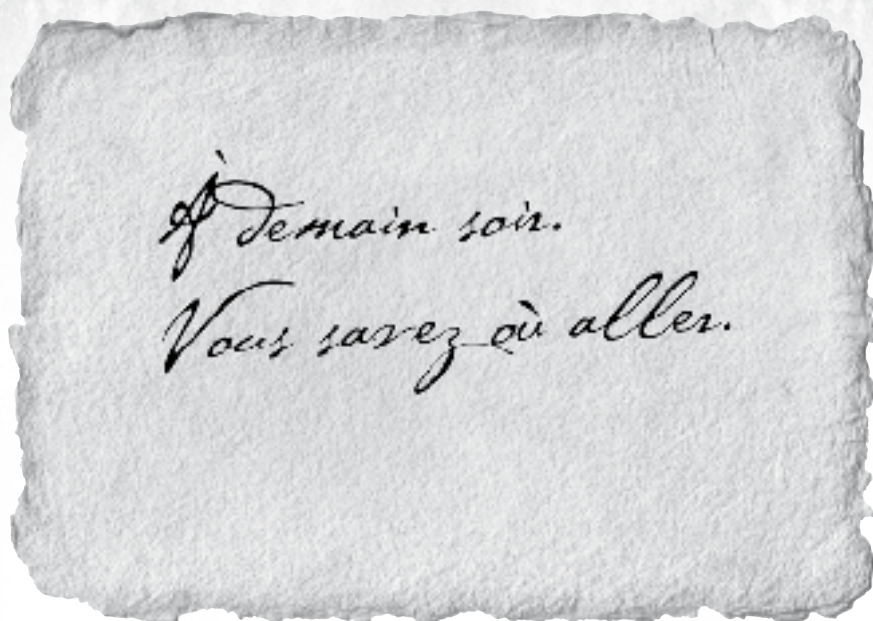 À demain soir.
Vous savez où aller.